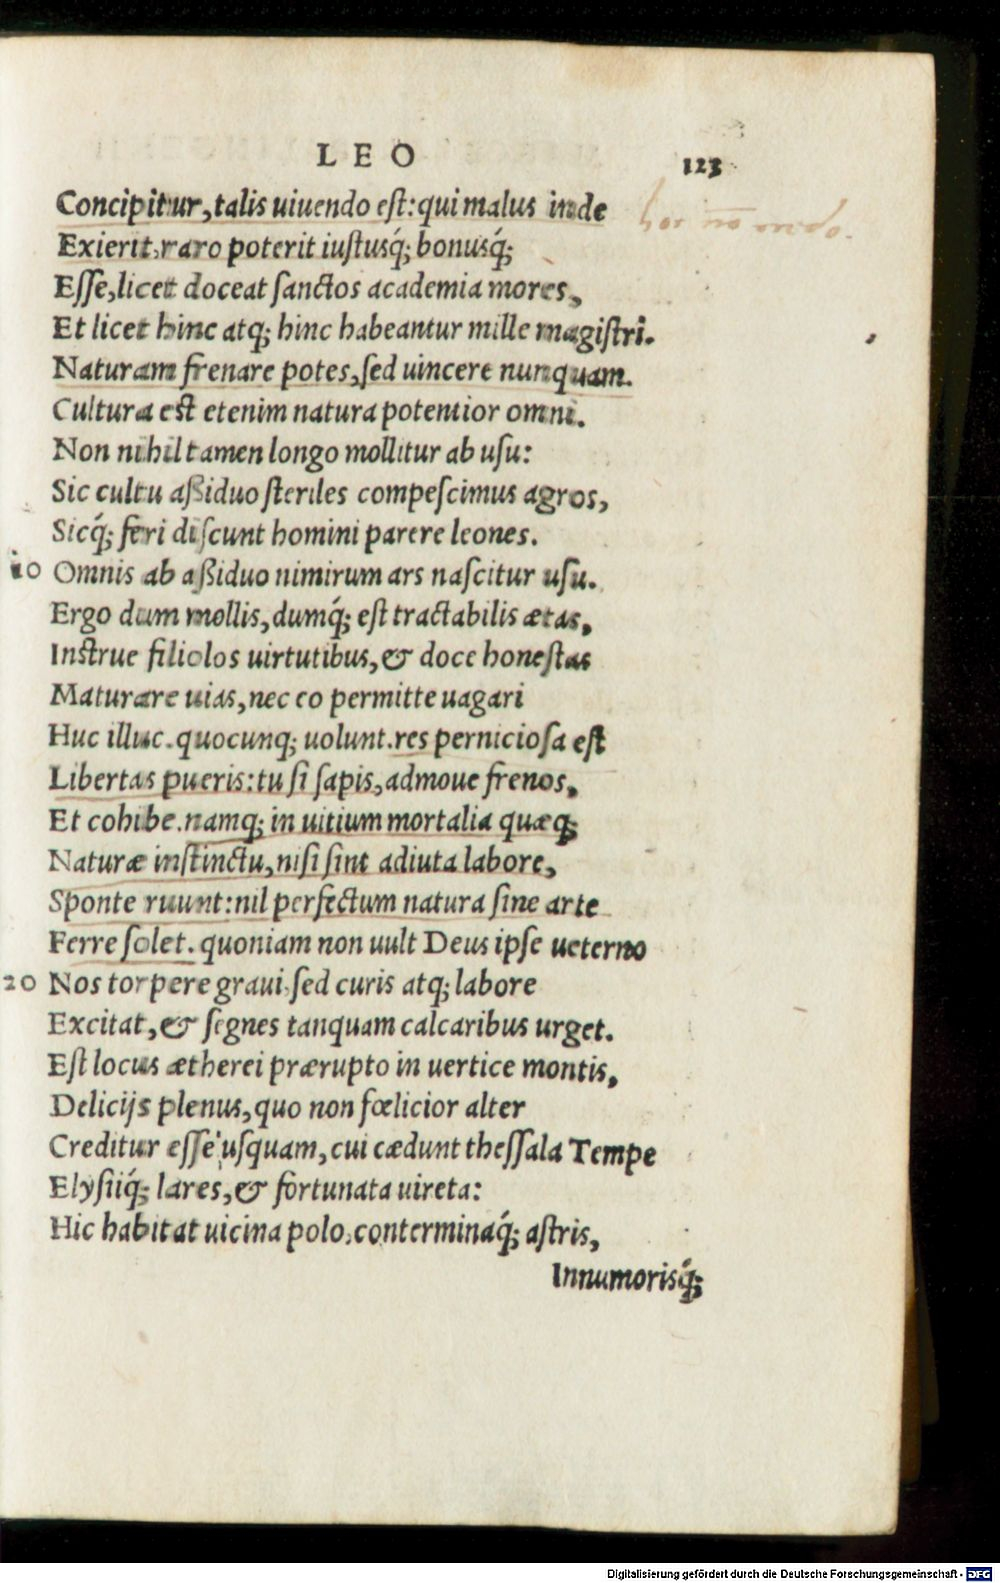 LEO 123
Concipitur, talis uiuendo est: qui malus inde
hoc no credo.
Exierit, raro poterit iustusq́; bonusq́;
Esse, licet doceat sanctos academia mores,
Et licet hinc atq; hinc habeantur mille magistri.
Naturam frenare potes, sed uincere nunquam.
Cultura est etenim natura potentior omni.
Non nihil tamen longo mollitur ab usu:
Sic cultu aßiduo steriles compescimus agros,
Sicq́; feri discunt homini parere leones.
10 Omnis ab aßiduo nimirum ars nascitur usu.
Ergo dum mollis, dumq́; est tractabilis ætas,
Instrue filiolos uirtutibus, & doce honestas
Maturare uias, nec eo permitte uagari
Huc illuc. quocunq; uolunt. res perniciosa est
Libertas pueris: tu si sapis, admoue frenos,
Et cohibe. namq; in uitium mortalia quæq;
Naturæ instinctu, nisi sint adiuta labore,
Sponte ruunt: nil perfectum natura sine arte
Ferre solet. quoniam non uult Deus ipse ueterno
20 Nos torpere graui, sed curis atq; labore
Excitat, & segnes tanquam calcaribus urget.
Est locus ætherei prærupto in uertice montis,
Delicijs plenus, quo non fœlicior alter
Creditur esse usquam, cui cædunt thessala Tempe
Elysiiq́; lares, & fortunata uireta:
Hic habitat uicina polo, conterminaq́; astris,
Innumorisq́;
Digitalisierung gefördert durch die Deutsche Forschungsgemeinschaft - DFG